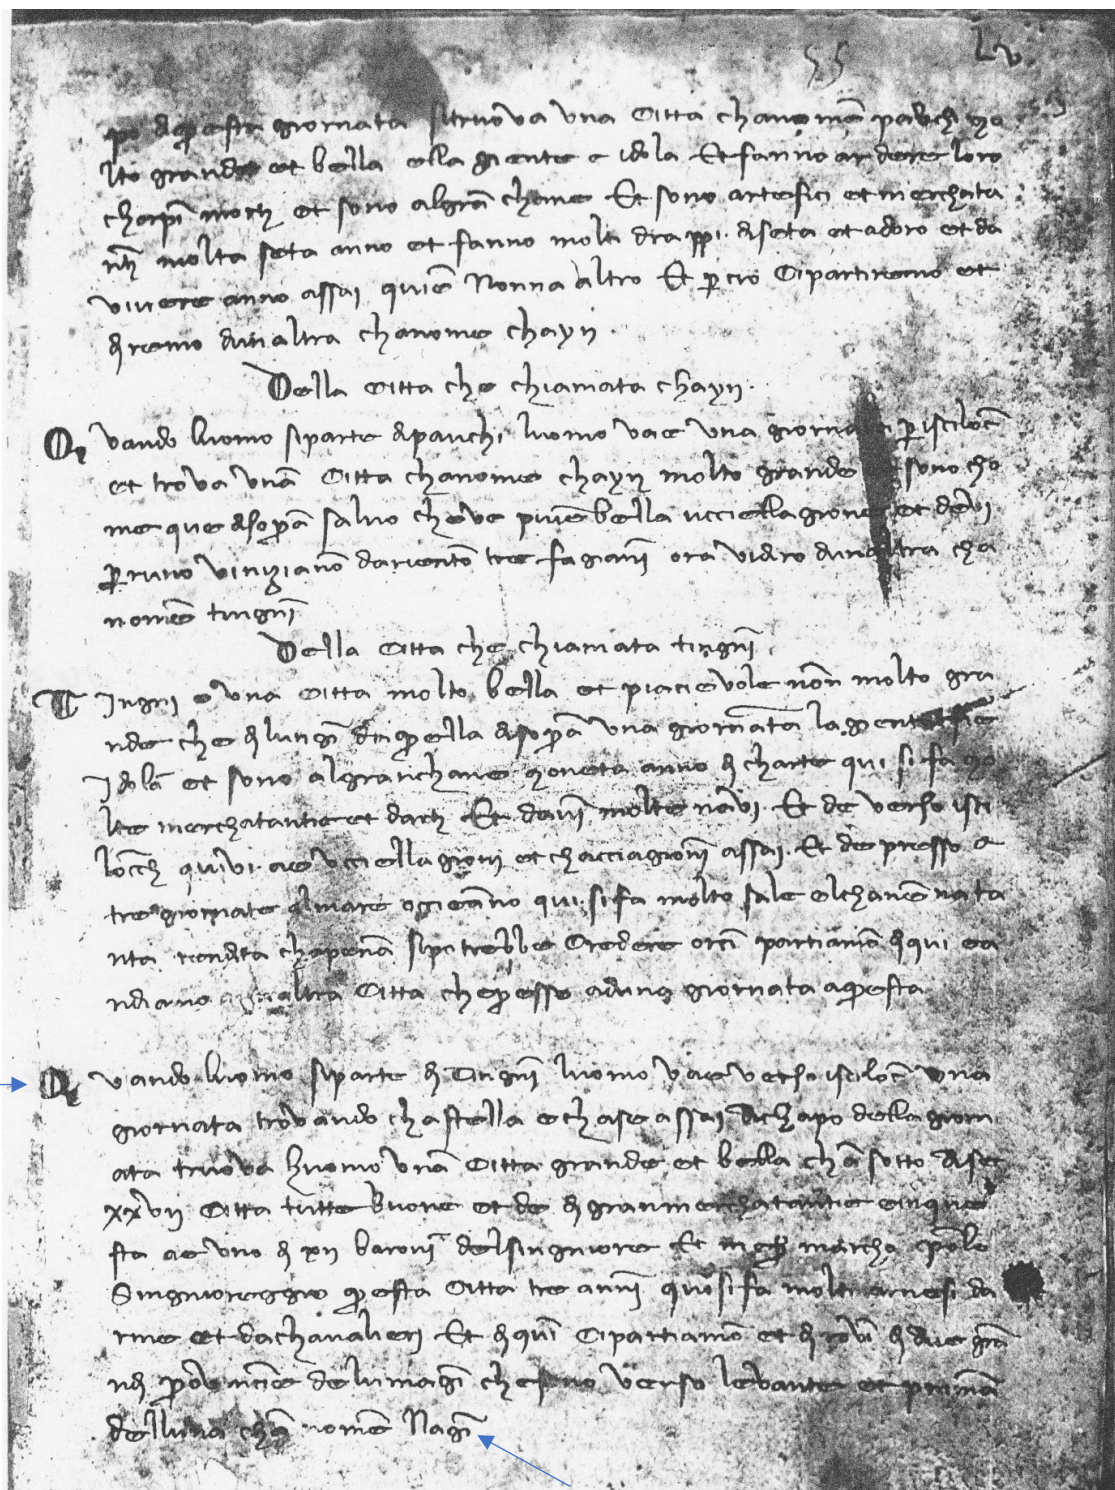 55 Lv
po di questa giornata si truova una Citta cha nome pauchi mo
lto grande et bella ella giente e idola Et fanno ardere loro
chorpi morti et sono al gran chane Et sono artefici et merchata
nti molta seta anno et fanno molti drappi di seta et adoro et da
vivere anno assai quie Nonna altro Et percio Ci partiremo et
diremo duna altra cha nome chayn
Della Citta che chiamata chayn
Quando luomo si parte di pauchi luomo vae una giornata per iscilocho
et trova una Citta cha nome chayn molto grande sono cho
me que di sopra salvo che ve piue bella uccellagione et devi
per uno viniziano dariento tre fagiani ora vi diro dunaltra cha
nome tingni
Della Citta che chiamata tingni
Tingni e una Citta molto bella et piacievole non molto gra
nde che di lungi da quella di sopra una giornata la giente
Idola et sono al gran chane moneta anno di charte qui si fa mo
lte merchatantie et darti Et davi molte navi Et de verso isci
locho quivi ae uccellagioni et chacciagioni assai Et de presso a
tre giornate al mare occieano qui si fa molto sale el chane na ta
nta rendita chapena si potrebbe Credere orci partiamo di qui ea
ndiamo altra Citta che presso aduna giornata a questa
Quando luomo si parte di Tingni luomo vae verso iscilocho una
giornata trovando chastella e chase assai Di chapo della giorn
ata truova luomo una Citta grande et bella cha sotto di se
xxvii Citta tutte buone et de di gran merchatantie e in que
sta ae uno di xii baroni del singniore Et mes marcho polo
Singnioreggio questa Citta tre anni qui si fa molti arnesi da
rme et da chavalieri Et di qui Ci partiamo et di rovi di due gra
ndi provincie de lumagi che sono verso levante et prima
delluna cha nome Nagi